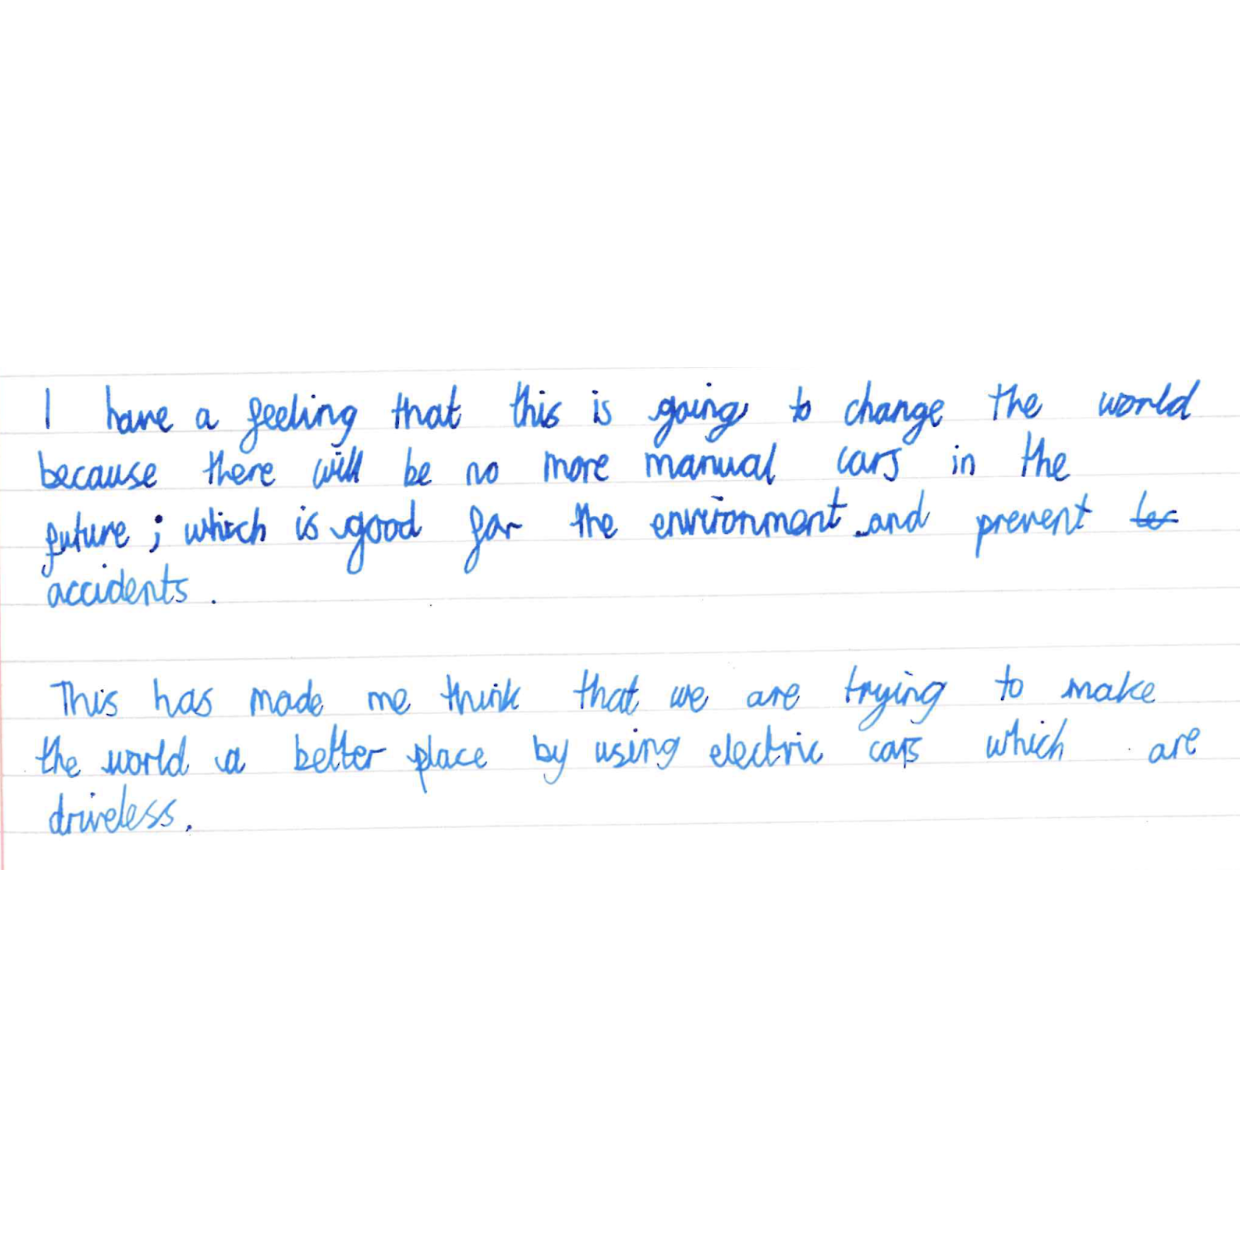 I have a feeling that this is going to change the world
because there will be no more manual cars in the
future ; which is good for the environment and prevent
accidents .
This has made me think that we are trying to make
the world a better place by using electric cars which are
driveless.